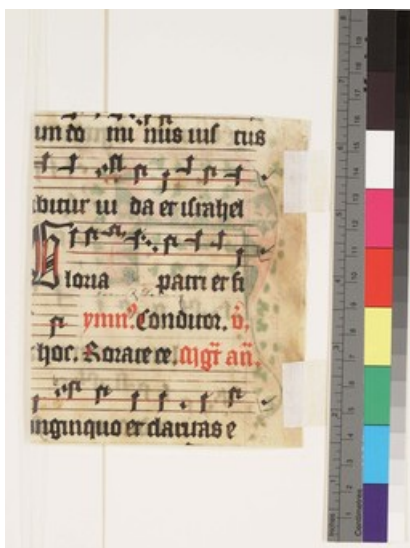 um do mi nus iuſ tus
abitur iu da et iſrahel
Gloria patri et fi
ymnꝰ. Conditor. v̉.
hoc. Rorate ce. Mgr̄ añ.
nginquo et claritas e
Inches
Centimetres